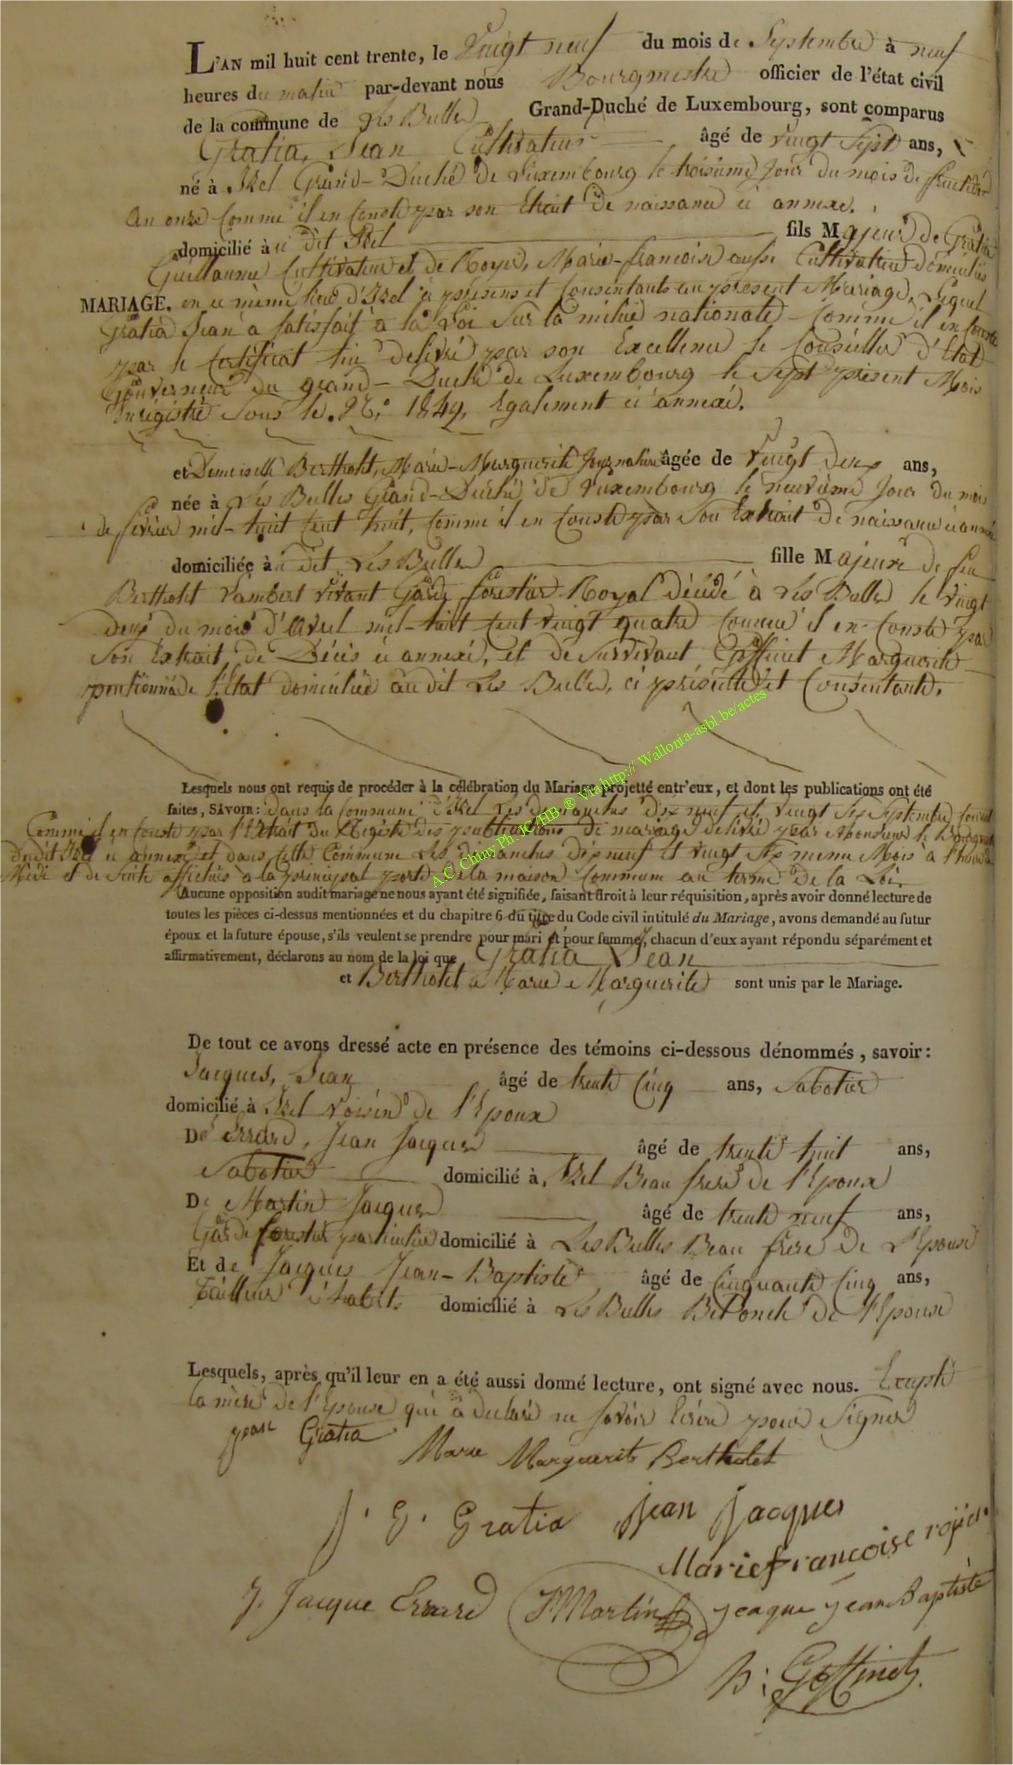 L'AN mil huit cent trente, le Vingt neuf du mois de Septembre à neuf
heures du matin par-devant nous Bourgmestre officier de l'état civil
de la commune de Les Bulles Grand-Duché de Luxembourg, sont comparus
Gratia, Jean Cultivateur âgé de vingt Sept ans,
né à Izel Grand-Duché de Luxembourg le troisieme Jour du mois de fructidor
an onze Comme il en Conste par son Extrait de naissance ci annexé.
domicilié à dit Izel fils Majeur de Gratia
Guillaume Cultivateur et de Royer, Marie-francoise aussi Cultivatrice domiciliés
MARIAGE. en ce même lieu d'Izel ci présens et Consentants au présent Mariage, Lequel
Gratia Jean a satisfait à la Loi sur la milice nationale Comme il en Conste
par le Certificat lui delivré par son Excellence le Conseiller d'Etat
Gouverneur du grand-Duché de Luxembourg le Sept présent Mois
Enrégistré Sous le 1849, Egalement ci annexé.
et Demeiselle Bertholet, Marie-Marguerite âgée de vingt deux ans,
née à Les Bulles Grand-Duché de Luxembourg le neuvième Jour du mois
de février mil-huit Cent huit, Comme il en Conste par Son Extrait de naissance ci annexé
domiciliée à dit Les Bulles fille Majeure de feu
Bertholet Lambert vivant Garde forestier Royal décédé à Les Bulles le vingt
deux du mois d'avril mil-huit Cent vingt quatre Comme il en Conste par
Son Extrait de Décès ci annexé, et de Survivant Goffinet Marguerite
pentionnée de l'Etat domiciliée au dit Les Bulles, ci présente et Consentante.
A.C. Chiny Ph. JC/HB ® Via http:// Wallonia-asbl.be/actes
Lesquels nous ont requis de procéder à la célébration du Mariage projetté entr'eux, et dont les publications ont été
faites, SAVOIR: dans la Commune d'Izel Les dimanches Dix neuf et vingt Six Septembre Courant
Comme il en Conste par l'Extrait du Registre des publications de mariage delivré par Monsieur le Bourgmestre
dudit Izel ci annexé et dans cette Commune Les dimanches dix neuf et vingt Six même Mois à l'heure de
Midi et de Suite affichés à la principal porte de la maison Commune au terme de la Loi.
Aucune opposition audit mariage ne nous ayant été signifiée, faisant droit à leur réquisition, après avoir donné lecture de
toutes les pièces ci-dessus mentionnées et du chapitre 6 du titre du Code civil intitulé du Mariage, avons demandé au futur
époux et la future épouse, s'ils veulent se prendre pour mari et pour femme, chacun d'eux ayant répondu séparément et
affirmativement, déclarons au nom de la loi que Gratia Jean
et Bertholet Marie Marguerite sont unis par le Mariage.
De tout ce avons dressé acte en présence des témoins ci-dessous dénommés, savoir:
Jacques, Jean âgé de trente Cinq ans, Sabotier
domicilié à Izel Voisin de l'Epoux
De Errard, Jean Jacques âgé de trente huit ans,
Sabotier domicilié à Izel Beau frere de l'Epoux
De Martin Jacques âgé de trente neuf ans,
Garde forestier particulier domicilié à Les Bulles Beau frere de L'Epouse
Et de Jacques Jean-Baptiste âgé de Cinquante Cinq ans,
Tailleur d'habits domicilié à Les Bulles Bel Oncle de l'Epouse
Lesquels, après qu'il leur en a été aussi donné lecture, ont signé avec nous. Excepté
la mère de l'Epouse qui a déclaré ne savoir Ecrire pour Signer
jean Gratia
Marie Marguerite Bertholet
J. G. Gratia Jean Jacques
Marie françoise royer
J. Jacque Errard J Martin jcaque jean Baptiste
h: Goffinet.